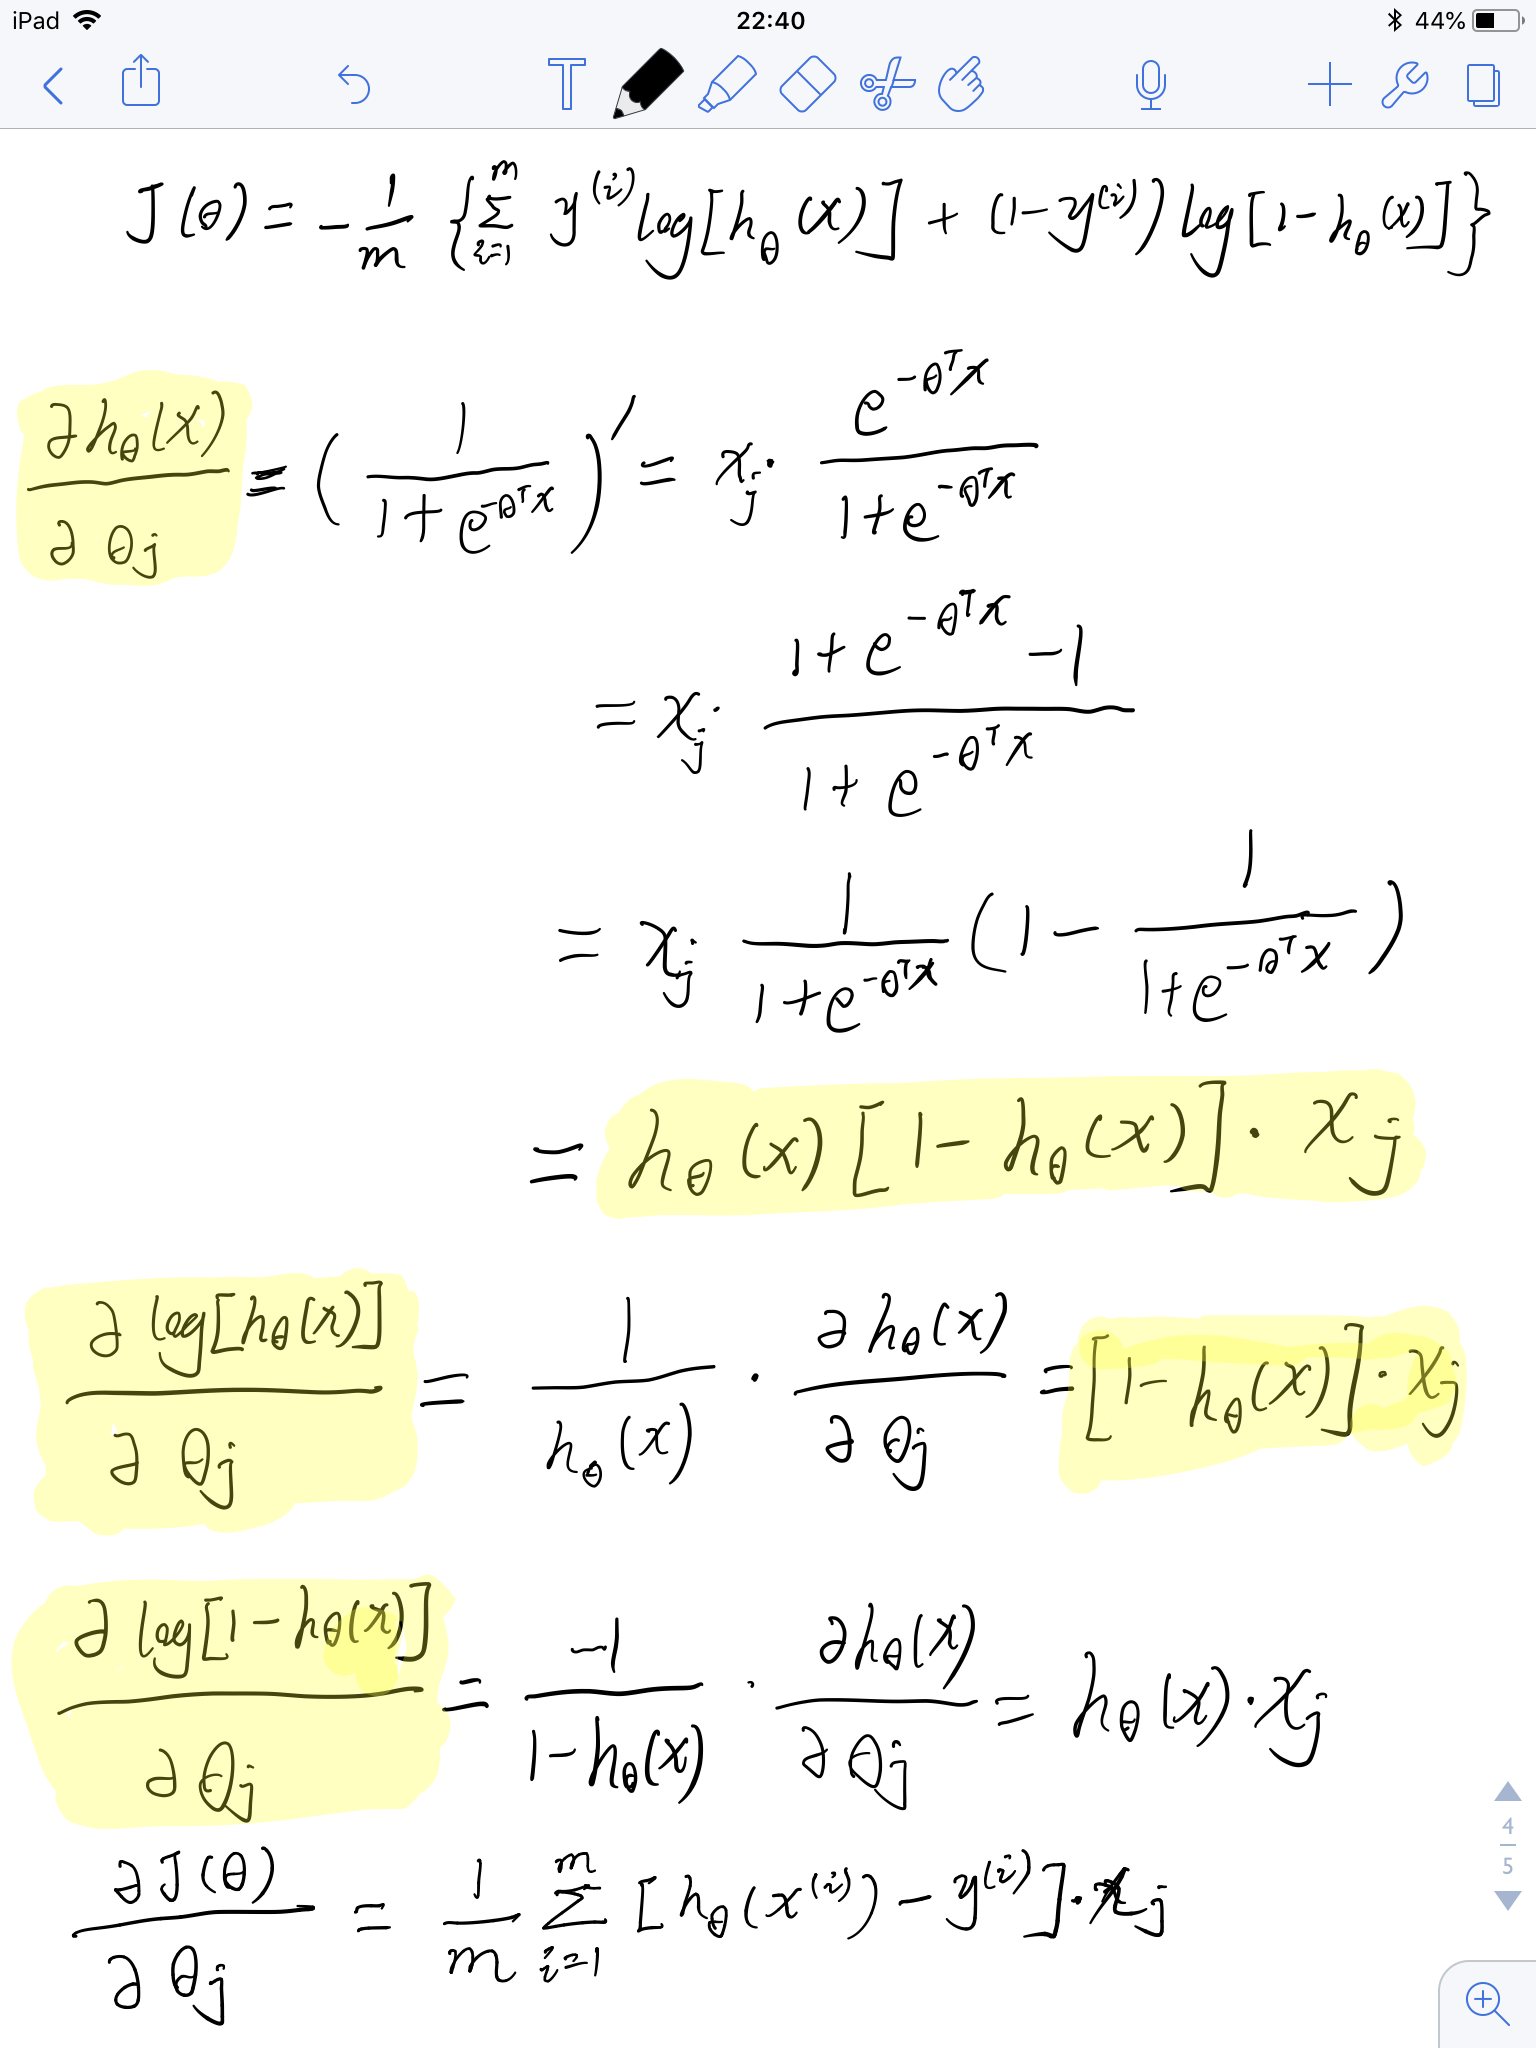 iPad 22:40 44%
T
J(θ) = -1/m {∑_{i=1}^{m} y^{(i)} log[h_θ(x)] + (1-y^{(i)}) log[1-h_θ(x)]}
∂h_θ(x)/∂θ_j = (1/(1+e^{-θ^T x}))′ = x_j · e^{-θ^T x}/(1+e^{-θ^T x})
= x_j · (1+e^{-θ^T x}-1)/(1+e^{-θ^T x})
= x_j 1/(1+e^{-θ^T x}) (1 - 1/(1+e^{-θ^T x}))
= h_θ(x)[1-h_θ(x)] · x_j
∂log[h_θ(x)]/∂θ_j = 1/h_θ(x) · ∂h_θ(x)/∂θ_j = [1-h_θ(x)] · x_j
∂log[1-h_θ(x)]/∂θ_j = -1/(1-h_θ(x)) · ∂h_θ(x)/∂θ_j = h_θ(x) · x_j
∂J(θ)/∂θ_j = 1/m ∑_{i=1}^{m} [h_θ(x^{(i)}) - y^{(i)}] · x_j
4
5